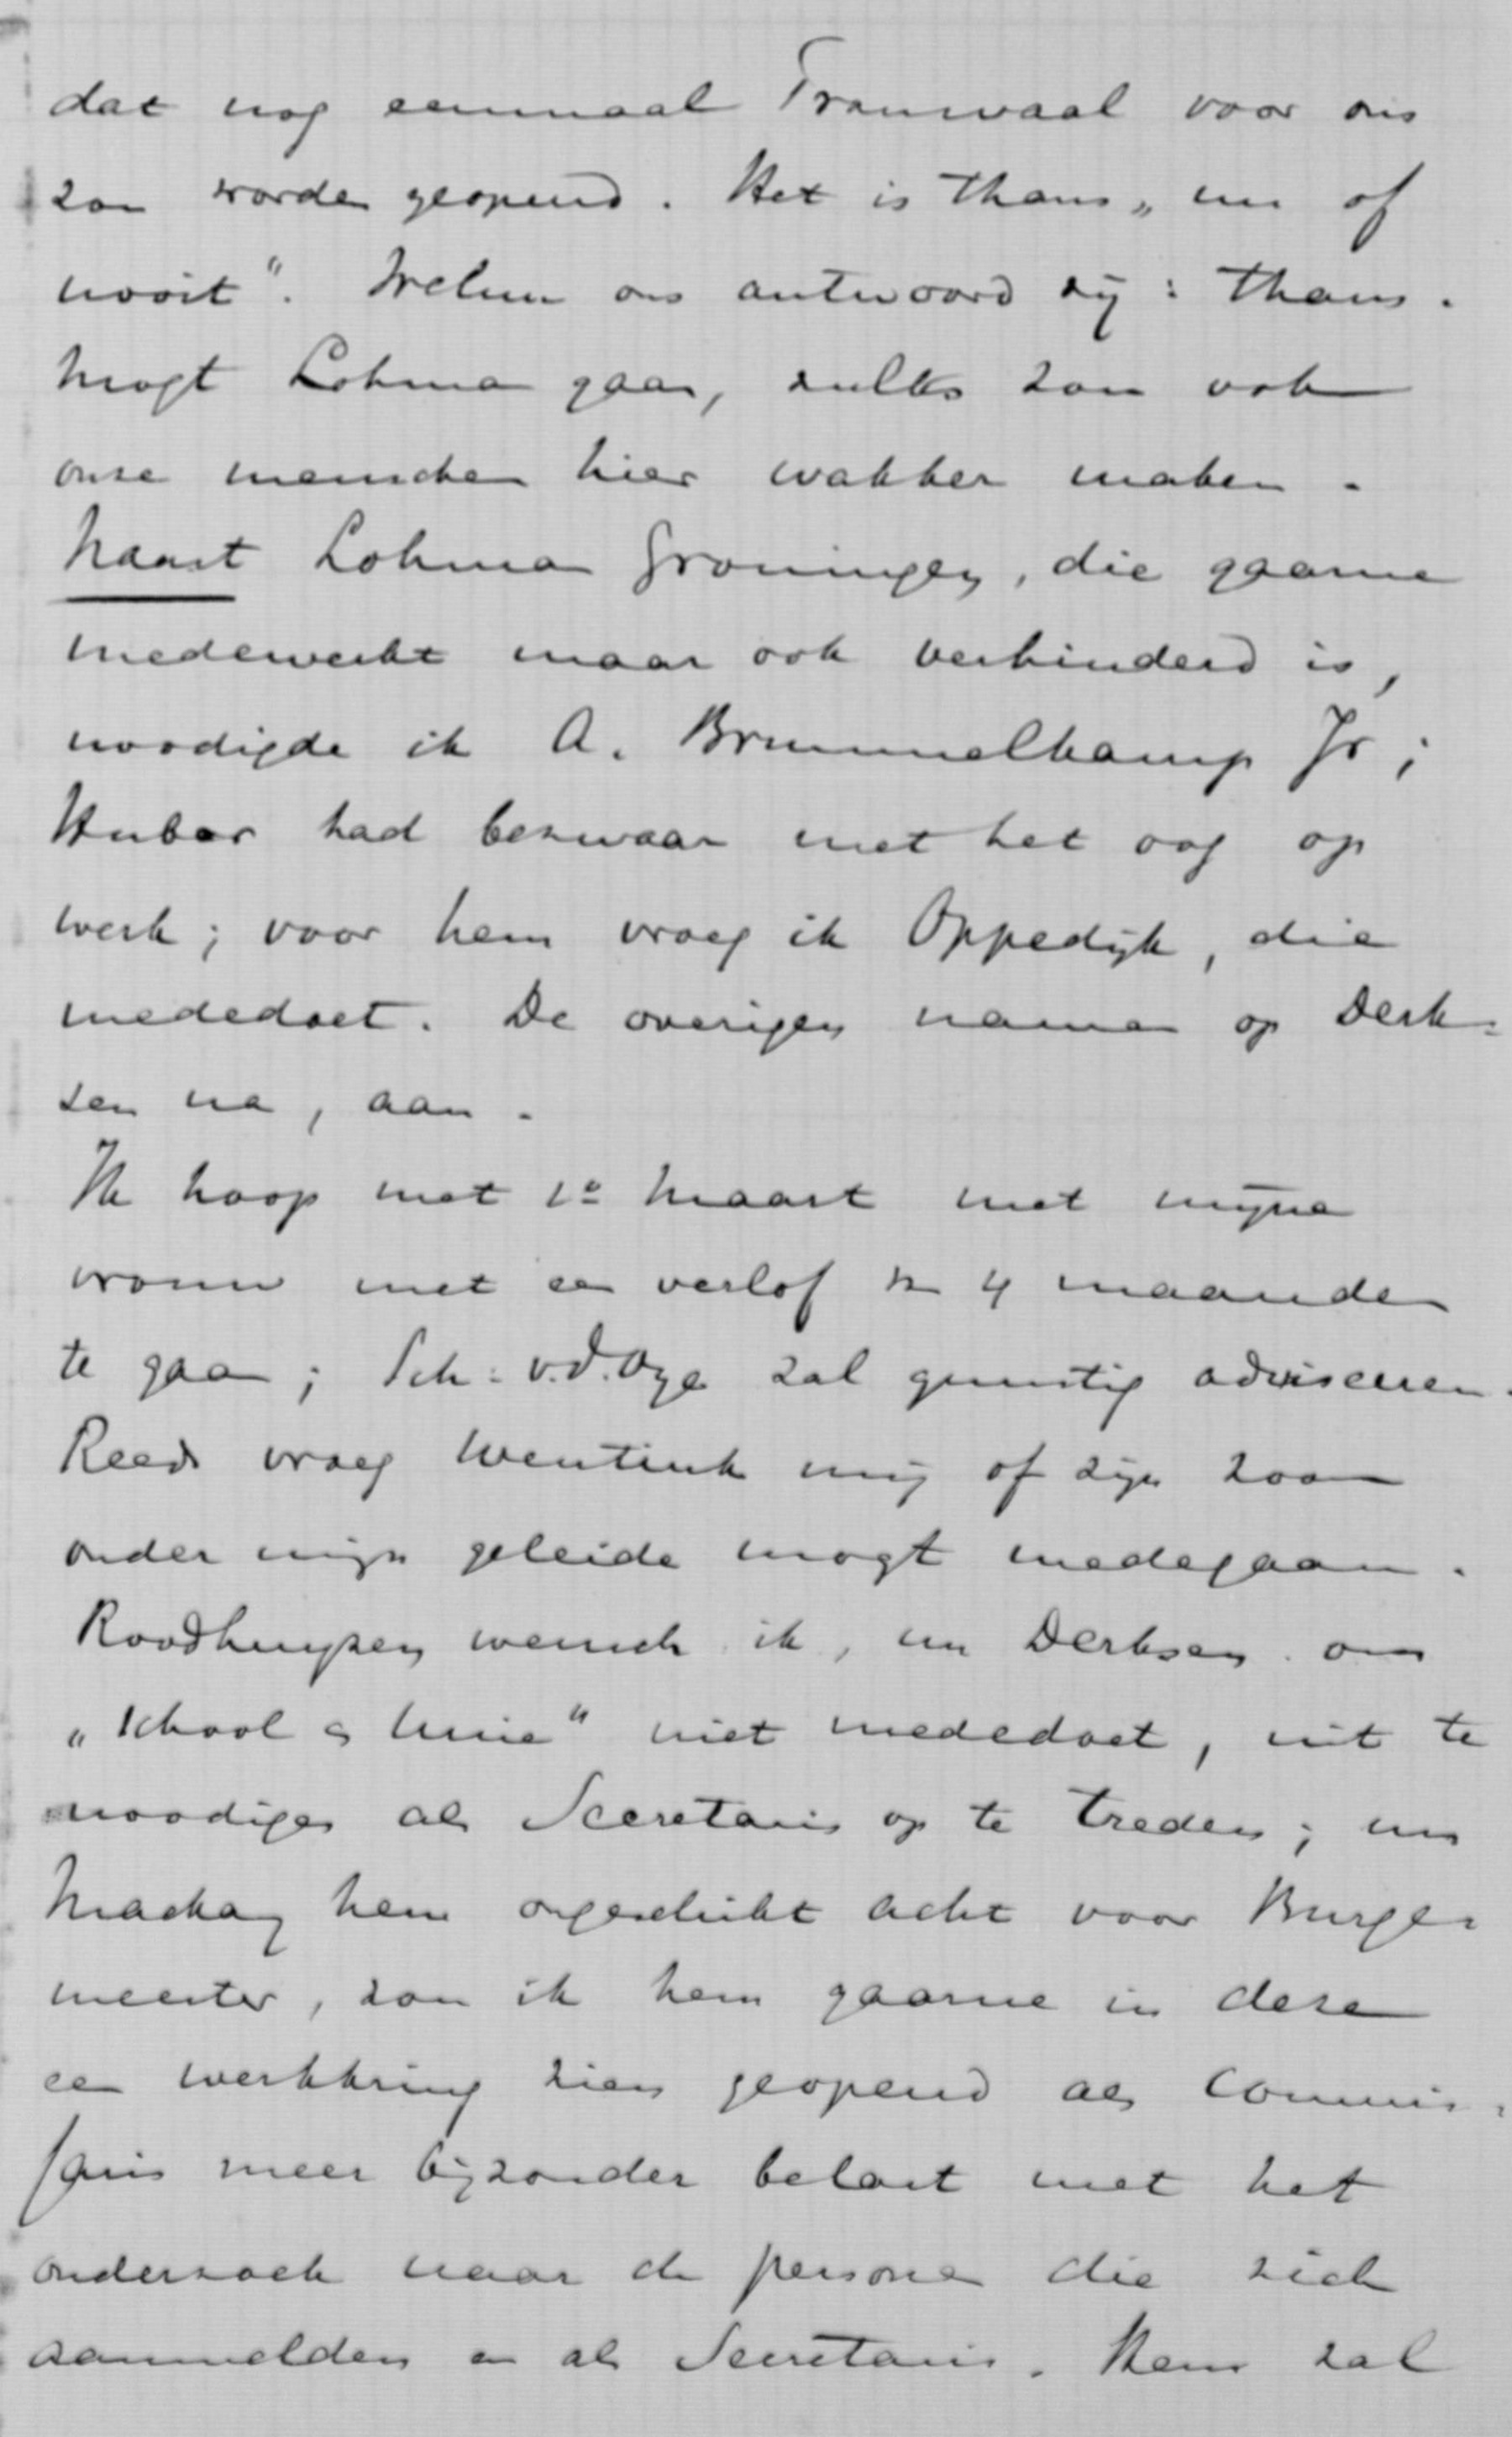 dat nog eenmaal Transvaal voor ons
zou worden geopend. Het is thans „nu of
nooit". Welnu ons antwoord zij: thans.
Mogt Lohman gaan, zulks zou ook
onze menschen hier wakker maken.
Naast Lohman Groningen, die gaarne
medewerkt maar ook verhinderd is,
noodigde ik A. Brummelkamp Jr;
Huber had bezwaar met het oog op
werk; voor hem vroeg ik Oppedijk, die
mededoet. De overigen namen op Derk-
sen na, aan.
Ik hoop met 1º Maart met mijne
vrouw met een verlof v 4 maanden
te gaan; Sch: v.d. Oye zal gunstig adviseeren.
Reeds vroeg Wentink mij of zijn zoon
onder mijn geleide mogt medegaan.
Roodhuyzen wensch ik, nu Derksen om
„School &amp; Unie" niet mededoet, uit te
noodigen als Secretaris op te treden; nu
Mackay hem ongeschikt acht voor Burge-
meester, zou ik hem gaarne in deze
een werkkring zien geopend als Commis-
saris meer bijzonder belast met het
onderzoek naar de personen die zich
aanmelden en als Secretaris. Hem zal